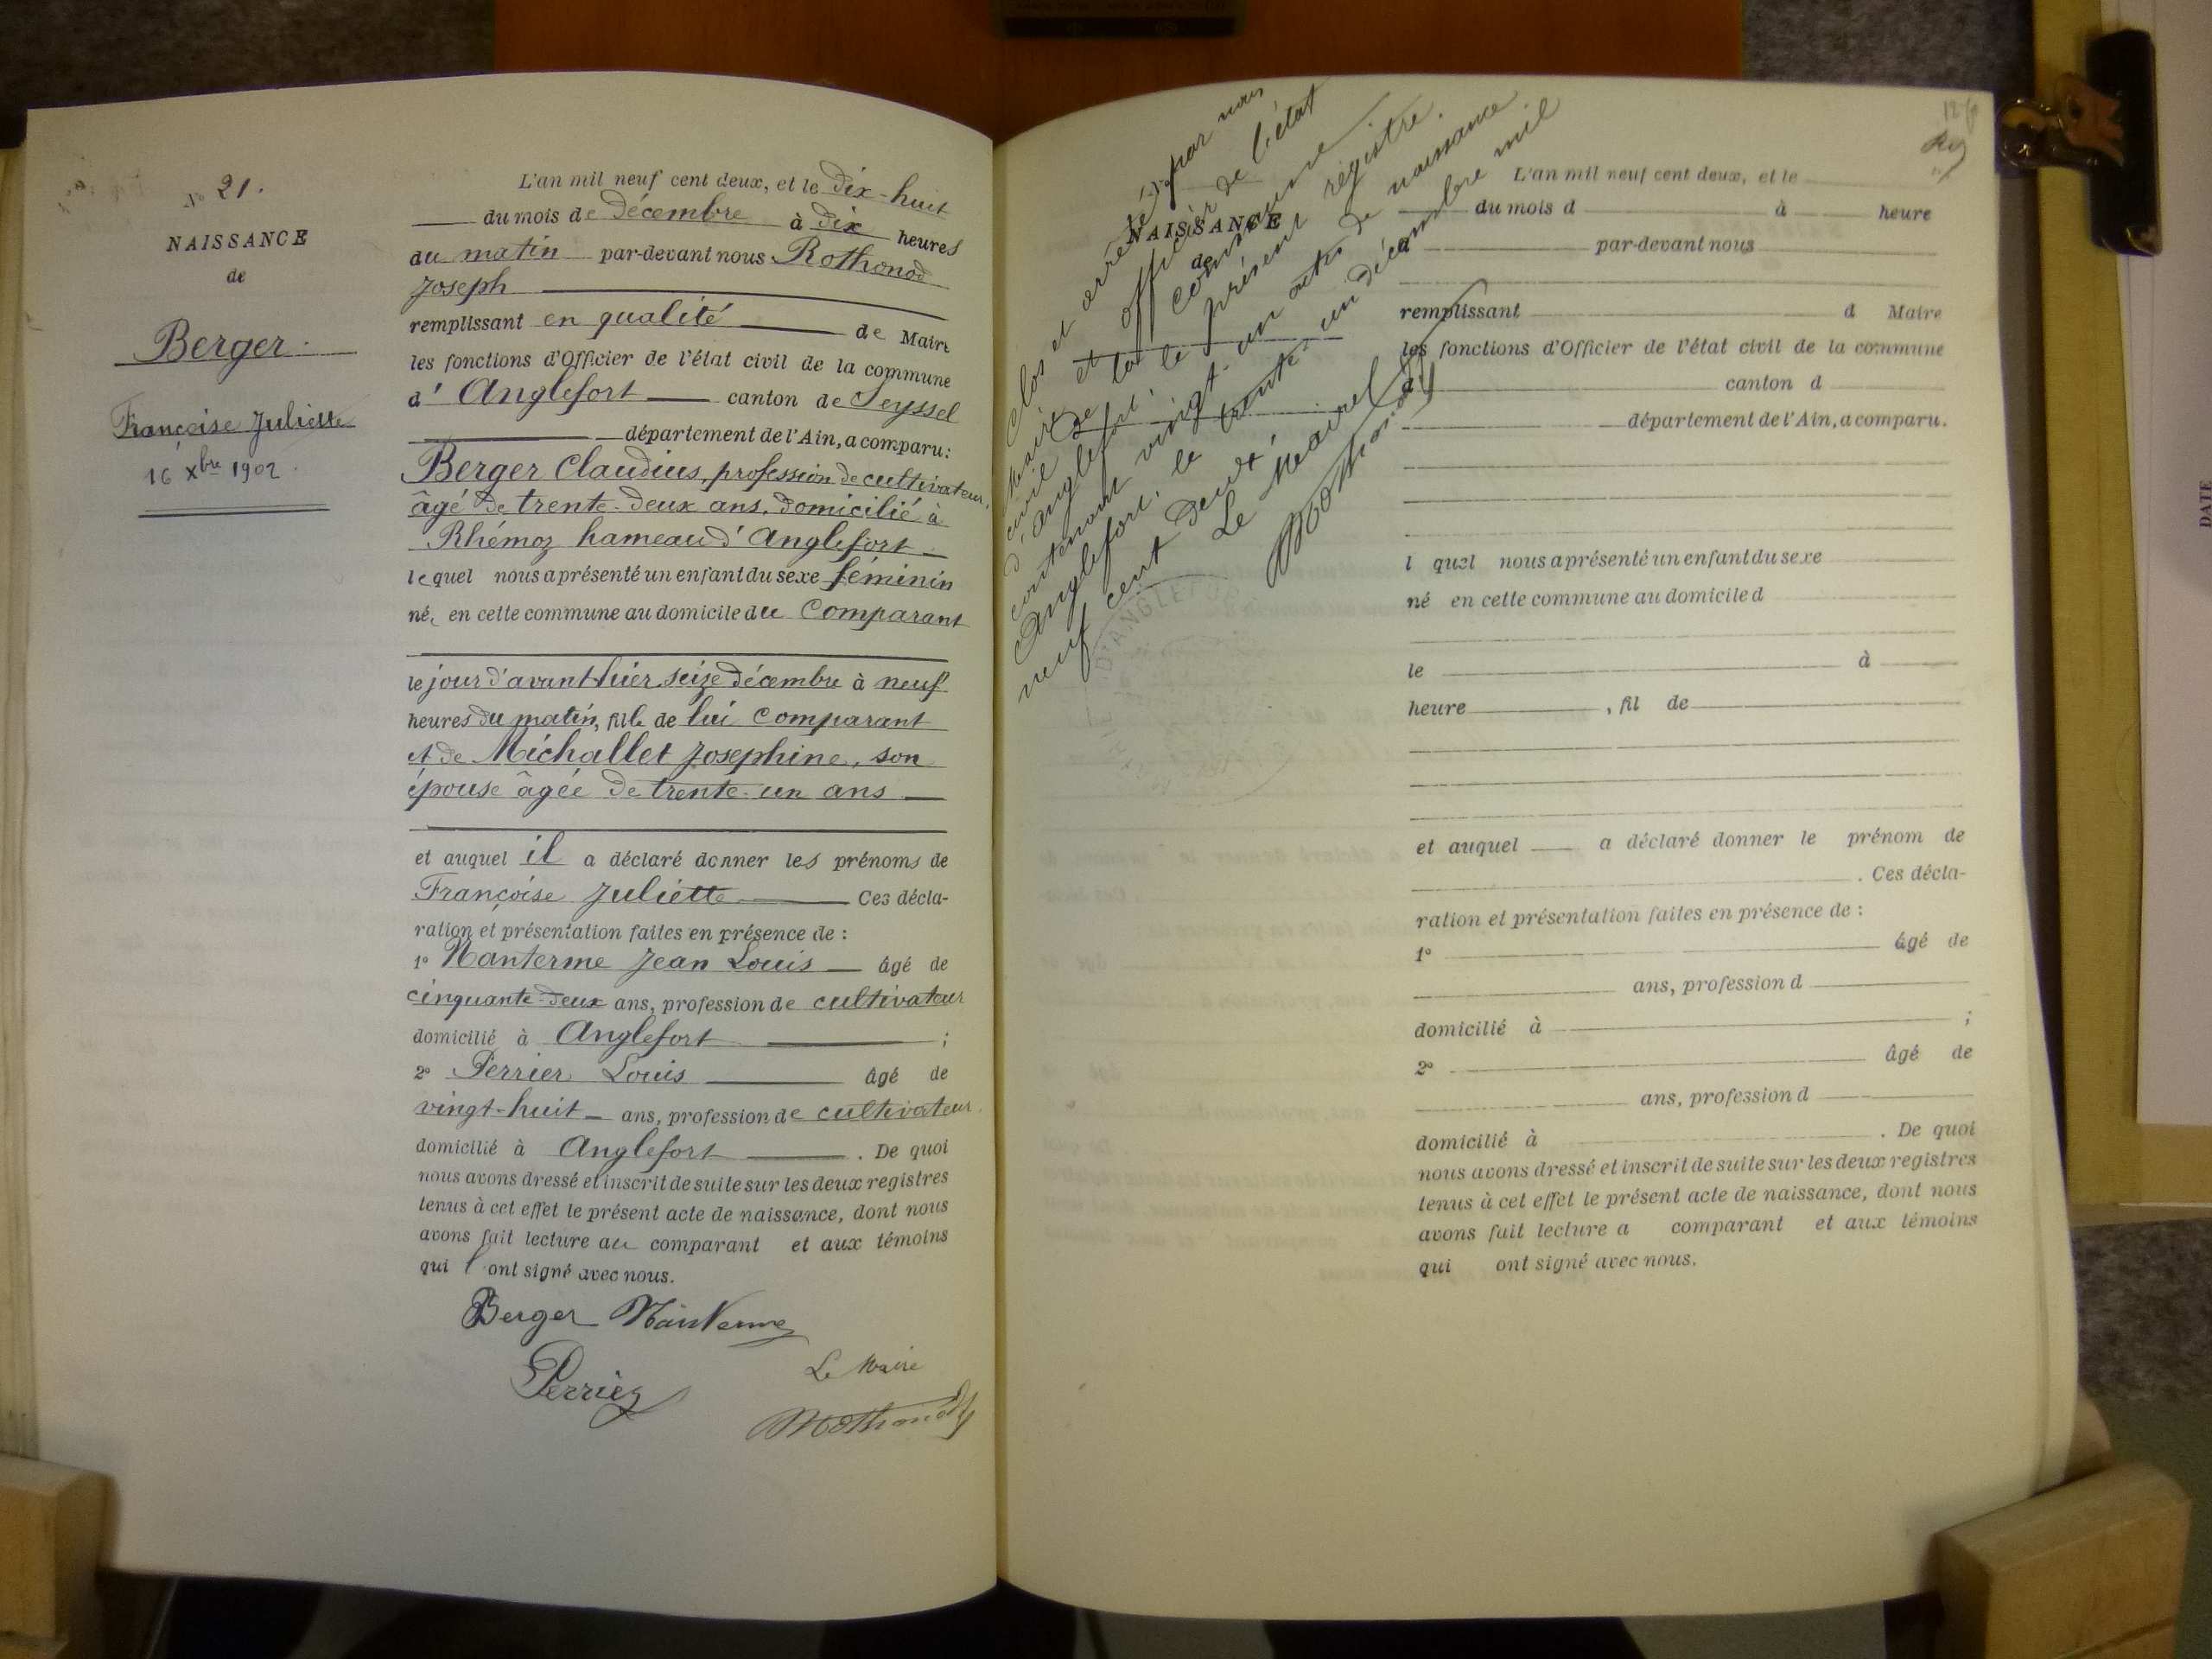 N° 21.
NAISSANCE
de
Berger
Françoise Juliette
16 Xbre 1902.
L'an mil neuf cent deux, et le dix-huit
du mois de décembre à dix heures
du matin par-devant nous Rothonod
Joseph
remplissant en qualité de Maire
les fonctions d'Officier de l'état civil de la commune
d'Anglefort canton de Seyssel
département de l'Ain, a comparu:
Berger Claudius, profession de cultivateur,
âgé de trente-deux ans, domicilié à
Rhémoz hameau d'Anglefort
lequel nous a présenté un enfant du sexe féminin
née en cette commune au domicile du Comparant
le jour d'avant hier seize décembre à neuf
heures du matin, fille de lui Comparant
et de Michallet Josephine, son
épouse âgée de trente-un ans
et auquel il a déclaré donner les prénoms de
Françoise Juliette Ces décla-
ration et présentation faites en présence de :
1° Nanterme Jean Louis âgé de
cinquante-deux ans, profession de cultivateur
domicilié à Anglefort ;
2° Perrier Louis âgé de
vingt-huit ans, profession de cultivateur
domicilié à Anglefort . De quoi
nous avons dressé et inscrit de suite sur les deux registres
tenus à cet effet le présent acte de naissance, dont nous
avons fait lecture au comparant et aux témoins
qui ont signé avec nous.
Berger Nanterme
Perrier
Le Maire
Rothonod
Clos et arrêté par nous
Maire et officier de l'état
civil de la commune
d'Anglefort le présent registre.
contenant vingt-un actes de naissance
Anglefort, le trente-un décembre mil
neuf cent deux
Le Maire
Rothonod
D'ANGLEFORT
NAISSANCE
de
L'an mil neuf cent deux, et le
du mois d à heure
d par-devant nous
remplissant d Maire
les fonctions d'Officier de l'état civil de la commune
d canton d
département de l'Ain, a comparu.
l quel nous a présenté un enfant du sexe
né en cette commune au domicile d
le à
heure , fil de
et auquel a déclaré donner le prénom de
. Ces décla-
ration et présentation faites en présence de :
1° âgé de
ans, profession d
domicilié à ;
2° âgé de
ans, profession d
domicilié à . De quoi
nous avons dressé et inscrit de suite sur les deux registres
tenus à cet effet le présent acte de naissance, dont nous
avons fait lecture a comparant et aux témoins
qui ont signé avec nous.
DATE